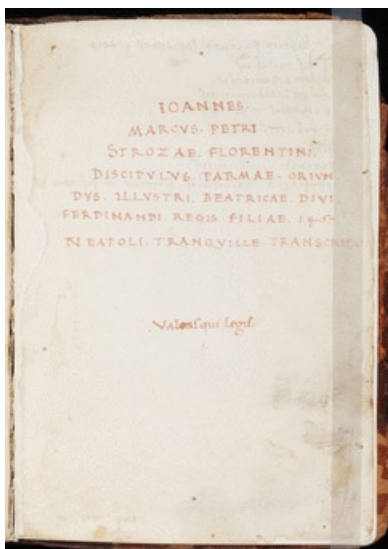 IOANNES.
MARCVS. PETRI
STROZAE. FLORENTINI.
DISCIPVLVS. PARMAE. ORIVN
DVS. ILLVSTRI. BEATRICAE. DIVI
FERDINANDI. REGIS. FILIAE.
NEAPOLI. TRANQVILLE. TRANSCRIPSI
Valeas qui legis.